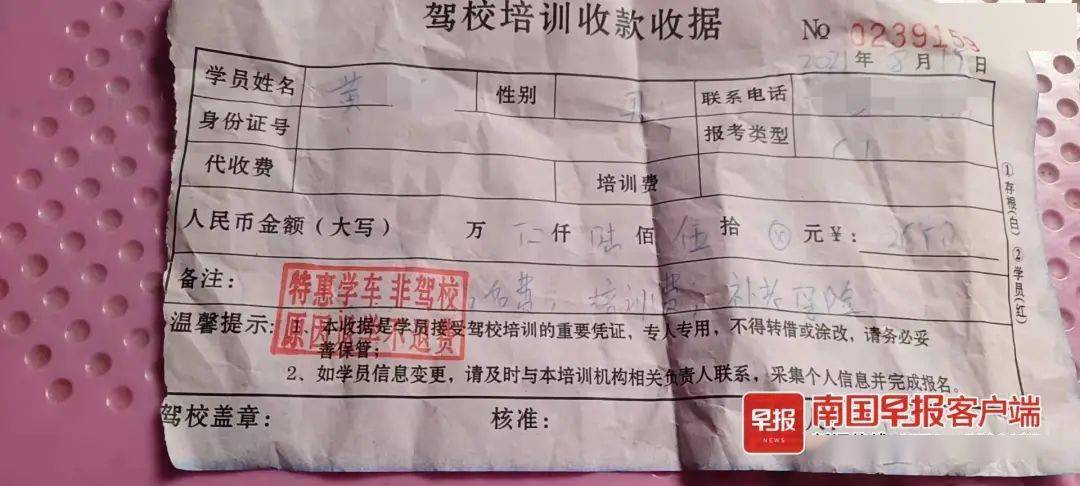 驾校培训收款收据
№ 0239159
2021年8月15日
学员姓名 黄 性别 联系电话
身份证号 报考类型
代收费 培训费
人民币金额（大写） 万 仟 陆 佰 伍 拾 元 ¥: 2650
备注: 名费, 培训费, 补考保险
特惠学车非驾校
原因退学不退费
温馨提示: 1、本收据是学员接受驾校培训的重要凭证，专人专用，不得转借或涂改，请务必妥
善保管；
2、如学员信息变更，请及时与本培训机构相关负责人联系，采集个人信息并完成报名。
驾校盖章: 核准:
①存根(白) ②学员(红)
早报
NEWS
南国早报客户端